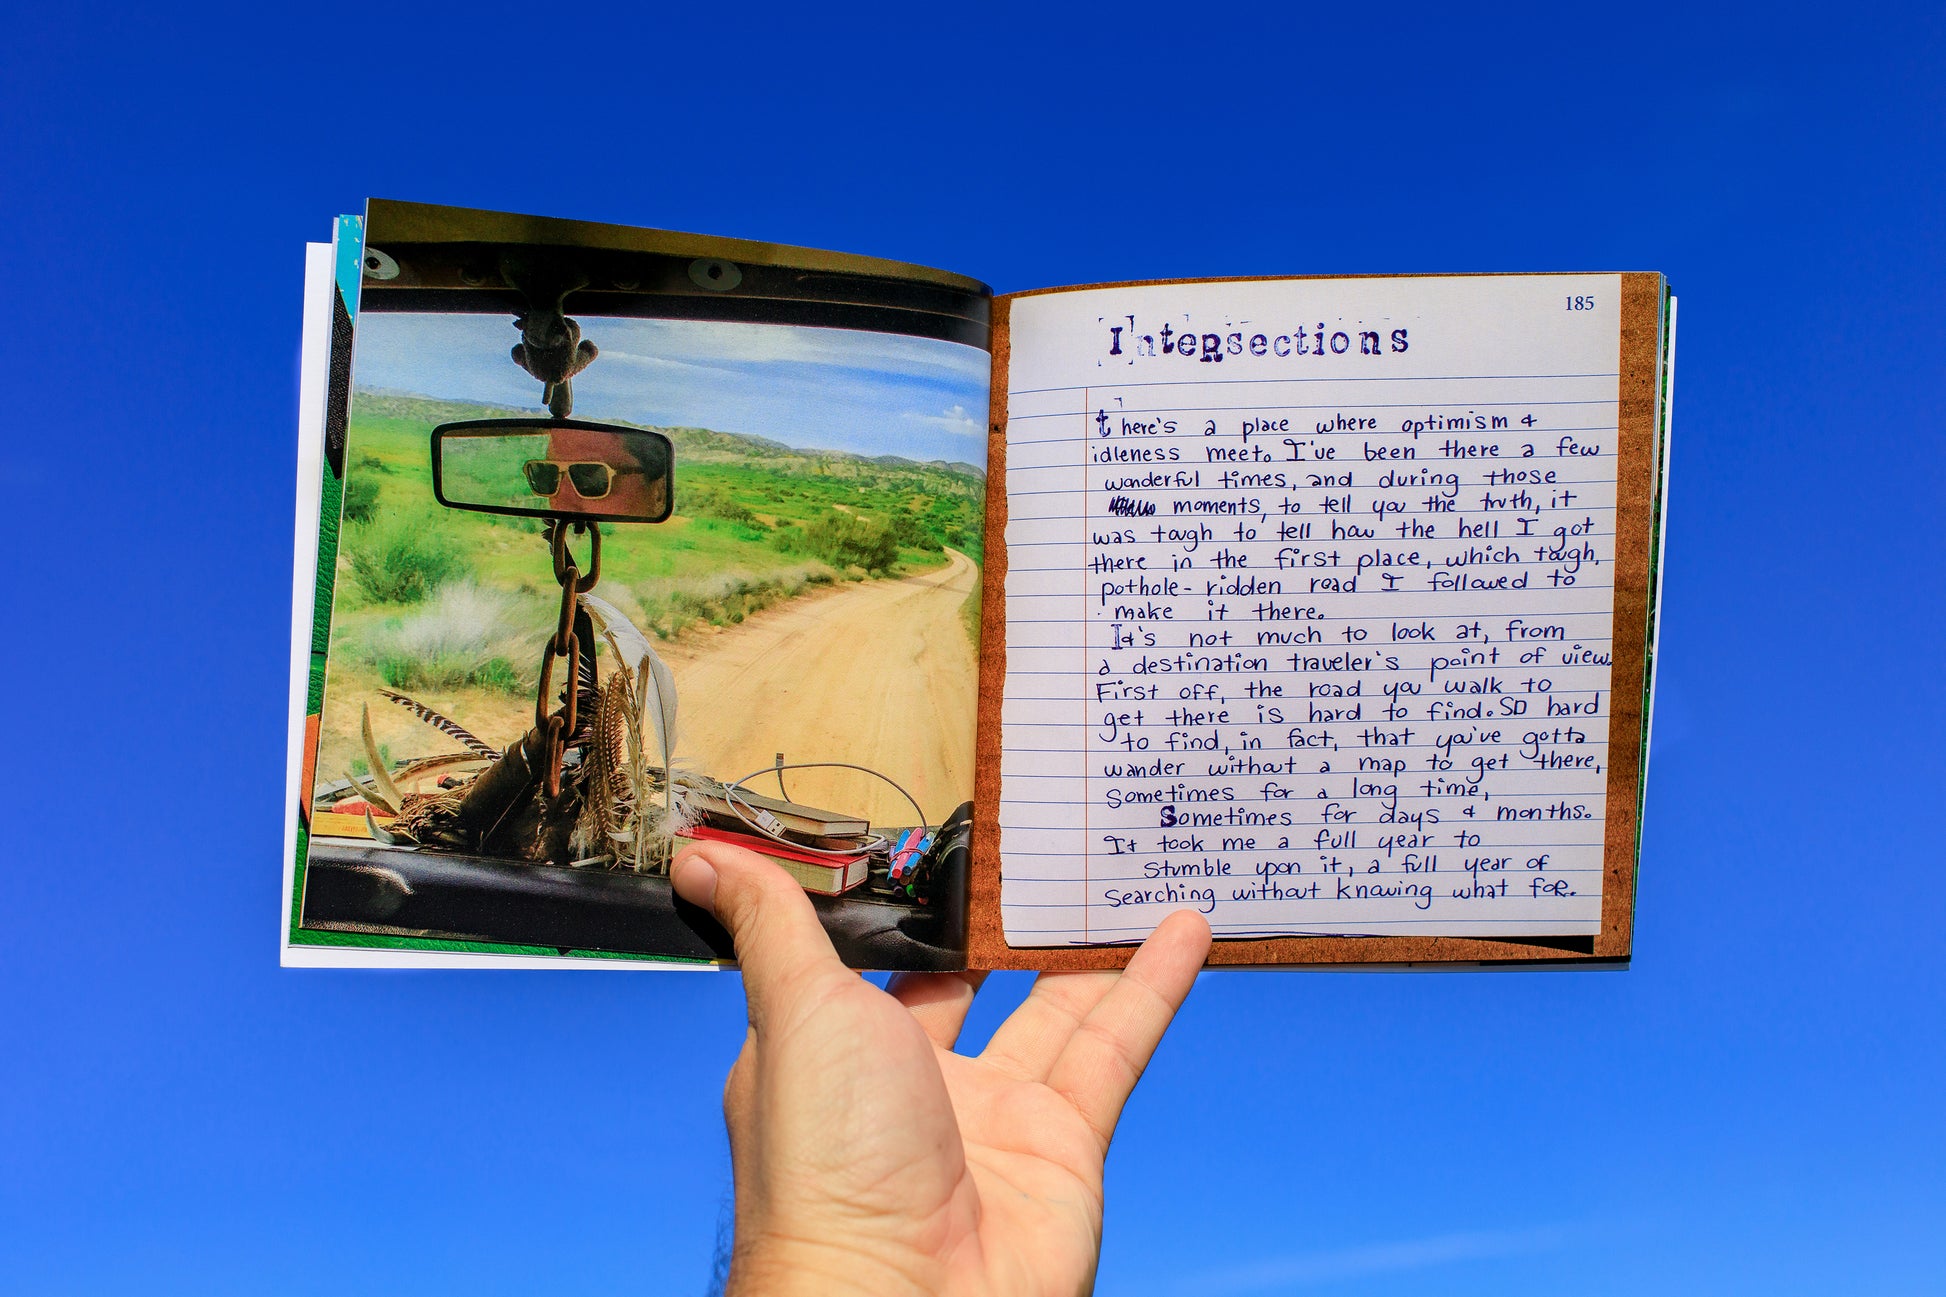 185
Intersections
there's a place where optimism &
idleness meet. I've been there a few
wonderful times, and during those
moments, to tell you the truth, it
was tough to tell how the hell I got
there in the first place, which tough,
pothole-ridden road I followed to
make it there.
It's not much to look at, from
a destination traveler's point of view.
First off, the road you walk to
get there is hard to find. SO hard
to find, in fact, that you've gotta
wander without a map to get there,
sometimes for a long time,
Sometimes for days & months.
It took me a full year to
stumble upon it, a full year of
searching without knowing what for.